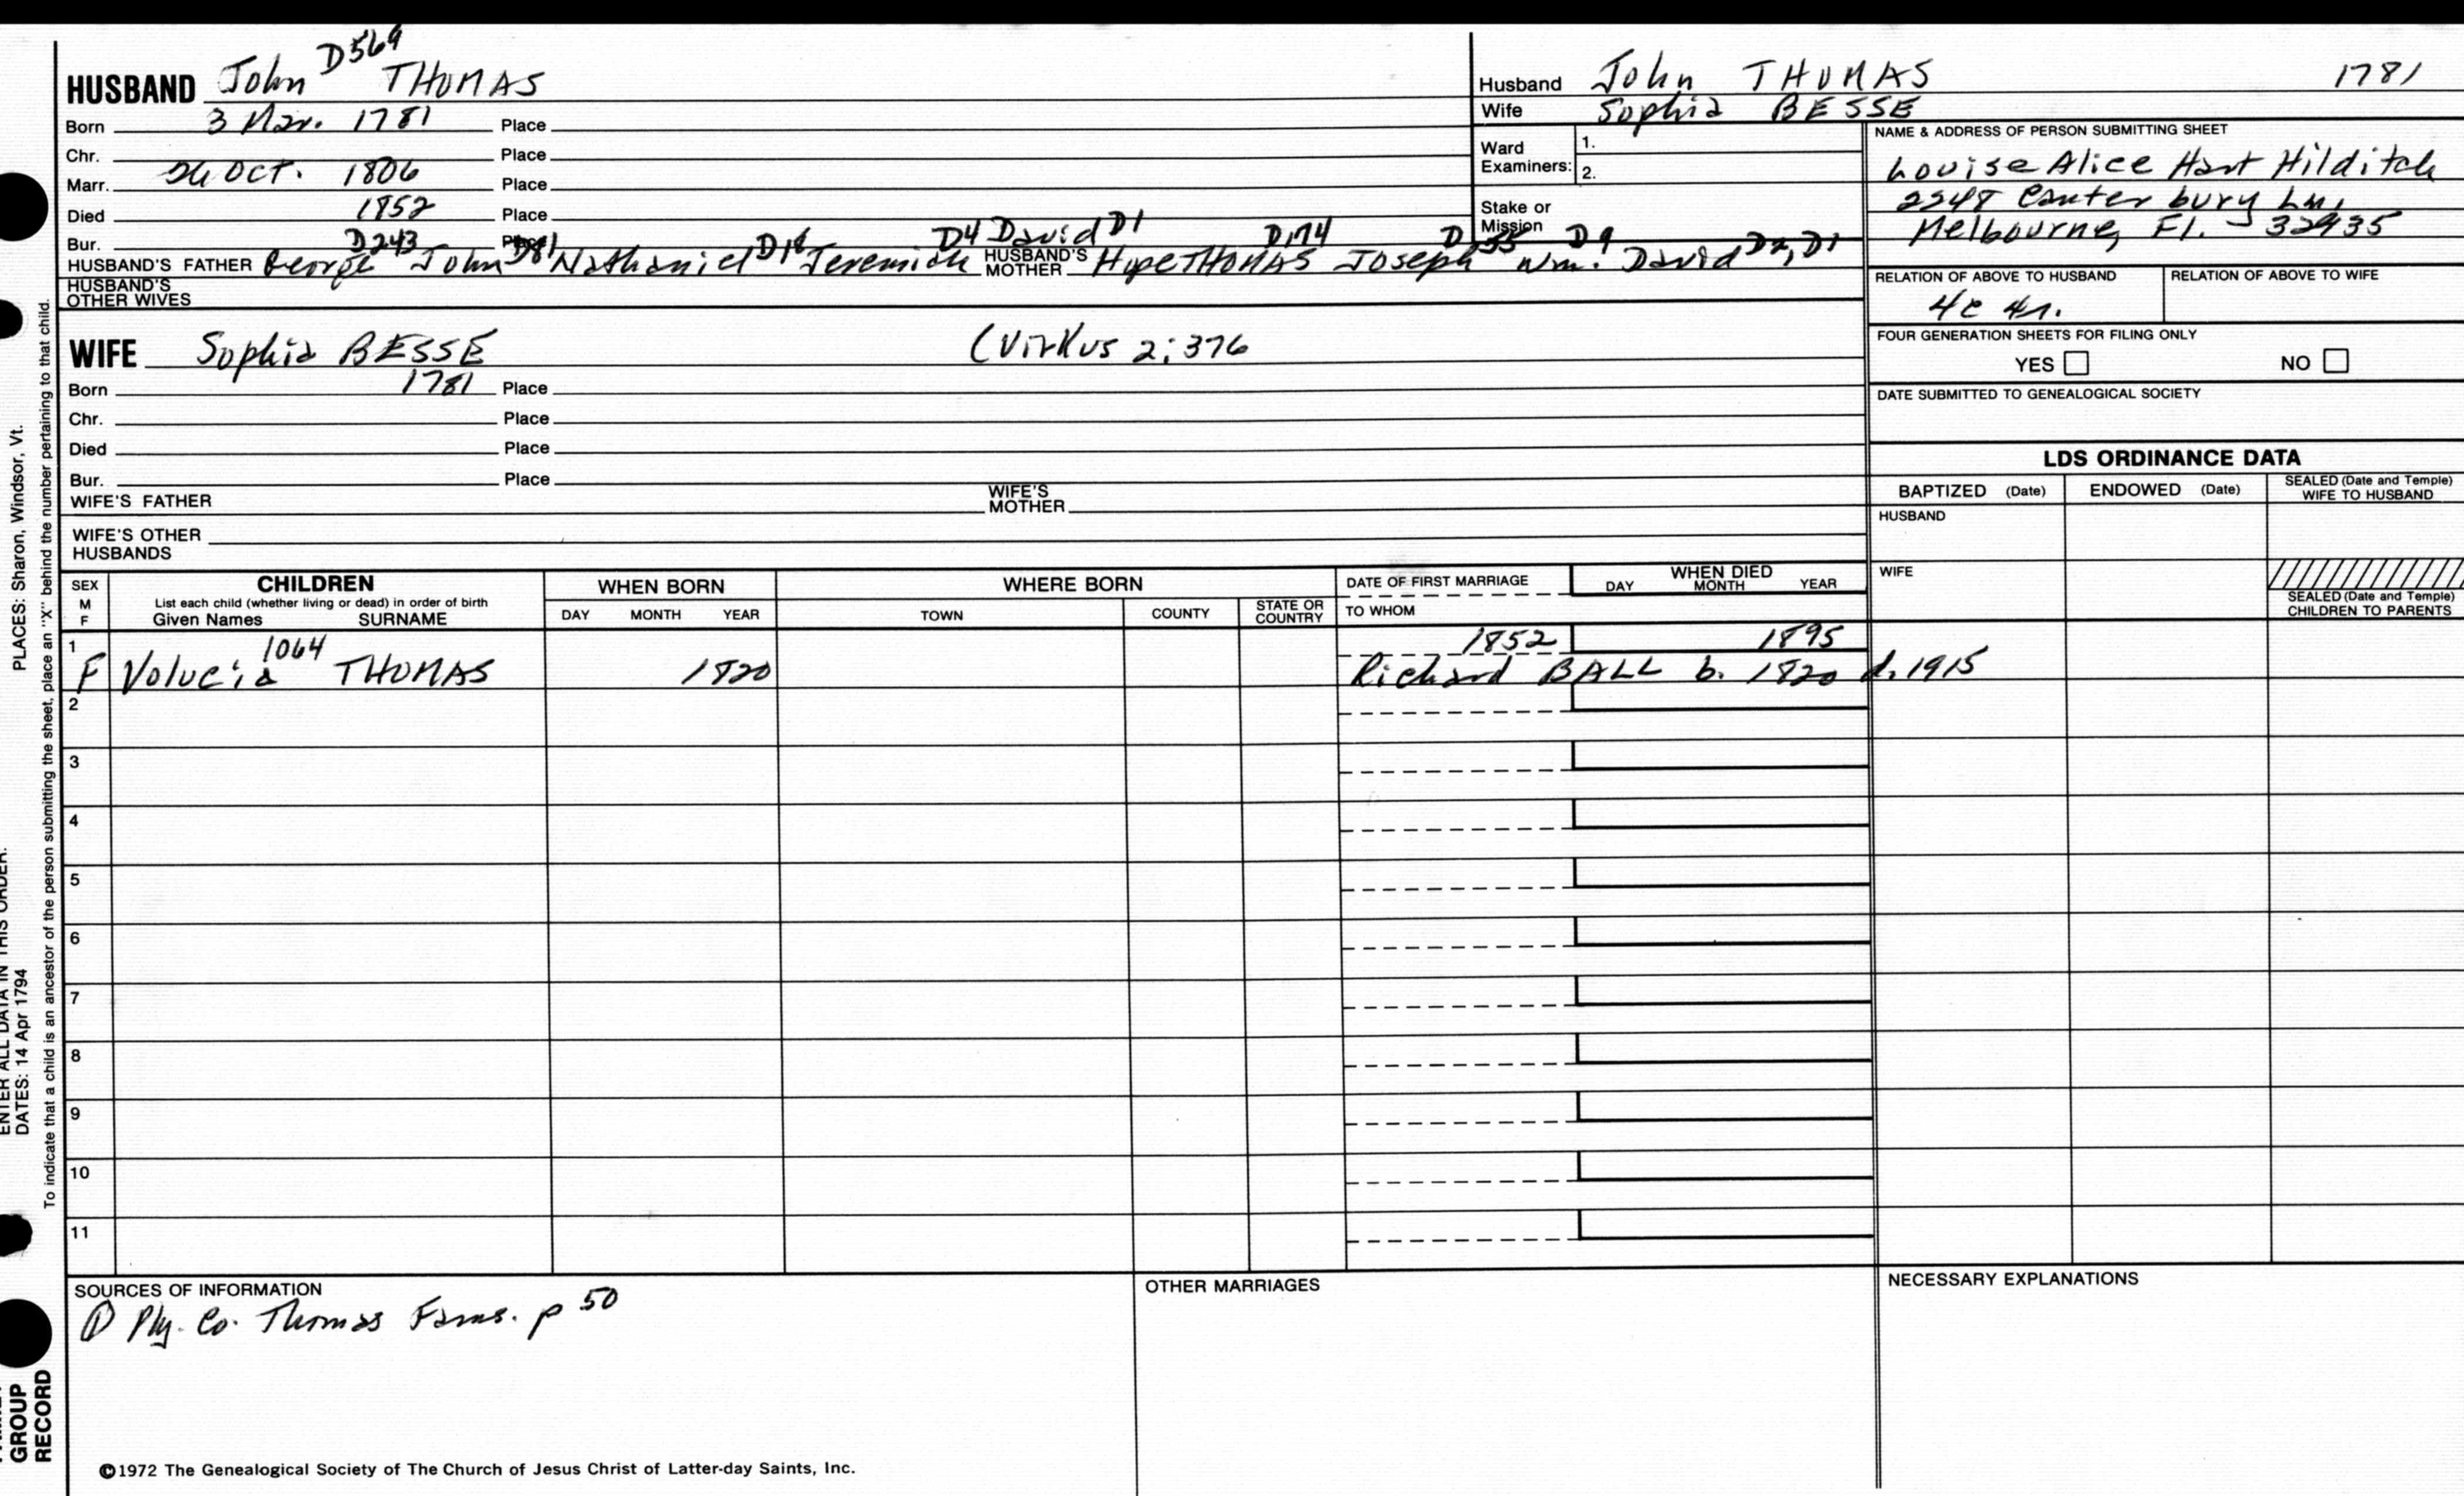 D569
HUSBAND John THOMAS
Born 3 Mar. 1781 Place
Chr. Place
Marr. 26 Oct. 1806 Place
Died 1852 Place
Bur. Place
D243 D81 D18 D4 David D1 D174 D55 D9
HUSBAND'S FATHER George John Nathaniel Jeremiah HUSBAND'S MOTHER Hope THOMAS Joseph Wm. David D2, D1
HUSBAND'S OTHER WIVES
WIFE Sophia BESSE (Virkus 2:376
Born 1781 Place
Chr. Place
Died Place
Bur. Place
WIFE'S FATHER WIFE'S MOTHER
WIFE'S OTHER HUSBANDS
Husband John THOMAS 1781
Wife Sophia BESSE
Ward Examiners: 1.
2.
Stake or Mission
NAME & ADDRESS OF PERSON SUBMITTING SHEET
Louise Alice Hart Hilditch
2548 Canterbury Ln,
Melbourne, Fl. - 32935
RELATION OF ABOVE TO HUSBAND RELATION OF ABOVE TO WIFE
4c 4r.
FOUR GENERATION SHEETS FOR FILING ONLY
YES NO
DATE SUBMITTED TO GENEALOGICAL SOCIETY
LDS ORDINANCE DATA
BAPTIZED (Date) ENDOWED (Date) SEALED (Date and Temple) WIFE TO HUSBAND
HUSBAND
WIFE
SEALED (Date and Temple) CHILDREN TO PARENTS
SEX M F
CHILDREN
List each child (whether living or dead) in order of birth
Given Names SURNAME
WHEN BORN
DAY MONTH YEAR
WHERE BORN
TOWN COUNTY STATE OR COUNTRY
DATE OF FIRST MARRIAGE
TO WHOM
WHEN DIED
DAY MONTH YEAR
1 1064 1852 1895
F Volucia THOMAS 1820 Richard BALL b. 1820 d. 1915
2
3
4
5
6
7
8
9
10
11
SOURCES OF INFORMATION
① Ply. Co. Thomas Fams. p 50
OTHER MARRIAGES
NECESSARY EXPLANATIONS
©1972 The Genealogical Society of The Church of Jesus Christ of Latter-day Saints, Inc.
PLACES: Sharon, Windsor, Vt.
ENTER ALL DATA IN THIS ORDER:
DATES: 14 Apr 1794
To indicate that a child is an ancestor of the person submitting the sheet, place an "X" behind the number pertaining to that child.
GROUP
RECORD